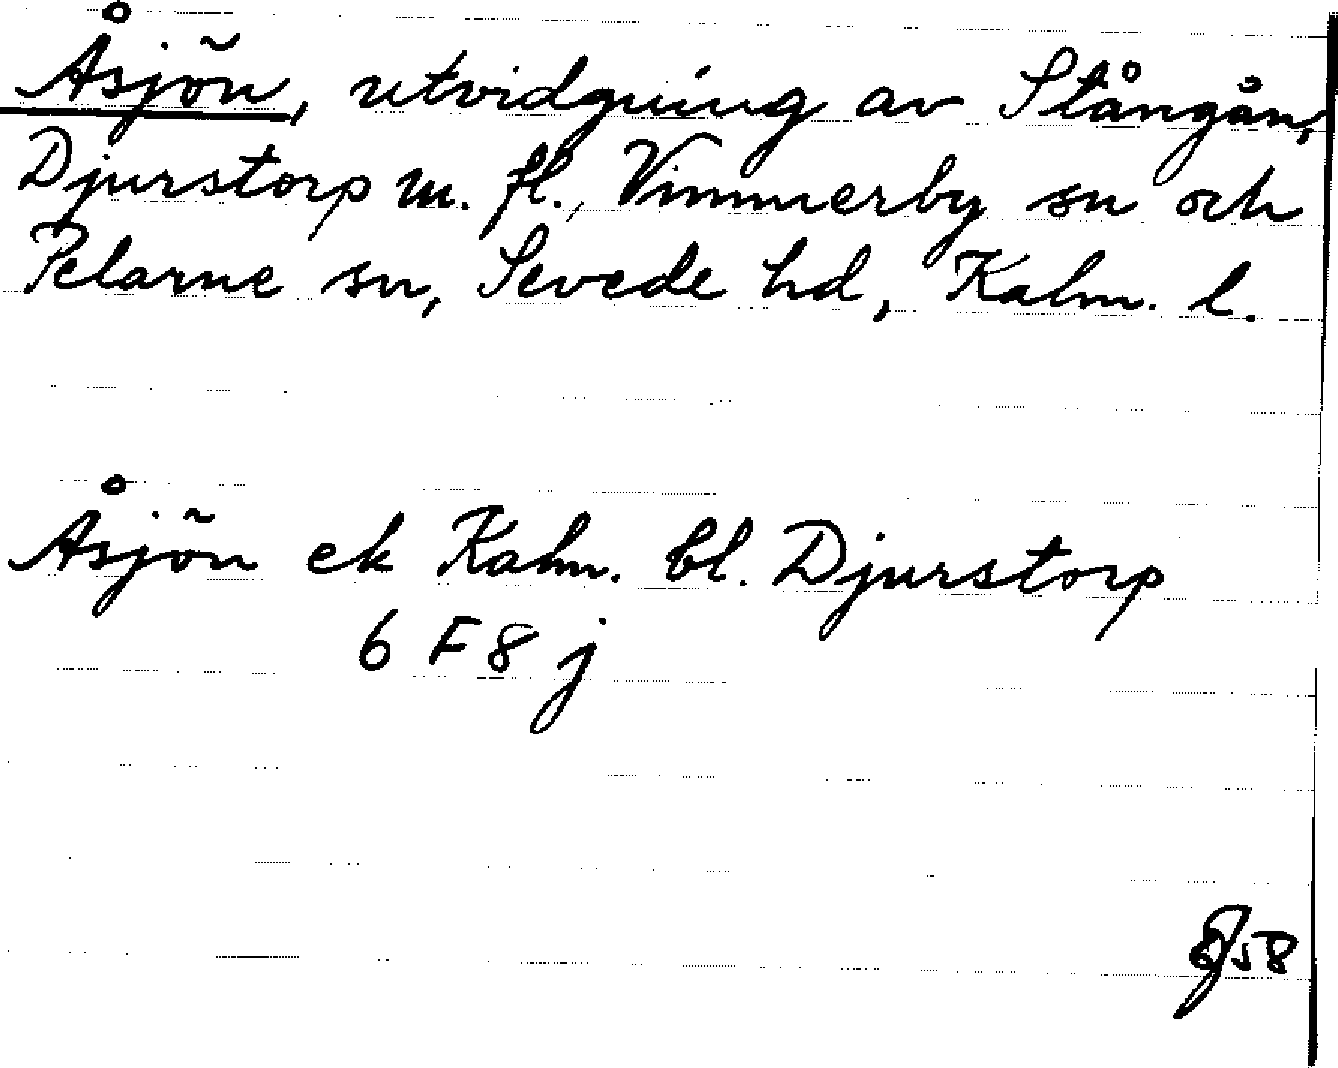 Åsjön, utvidgning av Stångån,
Djurstorp m. fl., Vimmerby sn och
Pelarne sn, Sevede hd, Kalm. l.
Åsjön ek Kalm. bl. Djurstorp
6 F 8 j
58